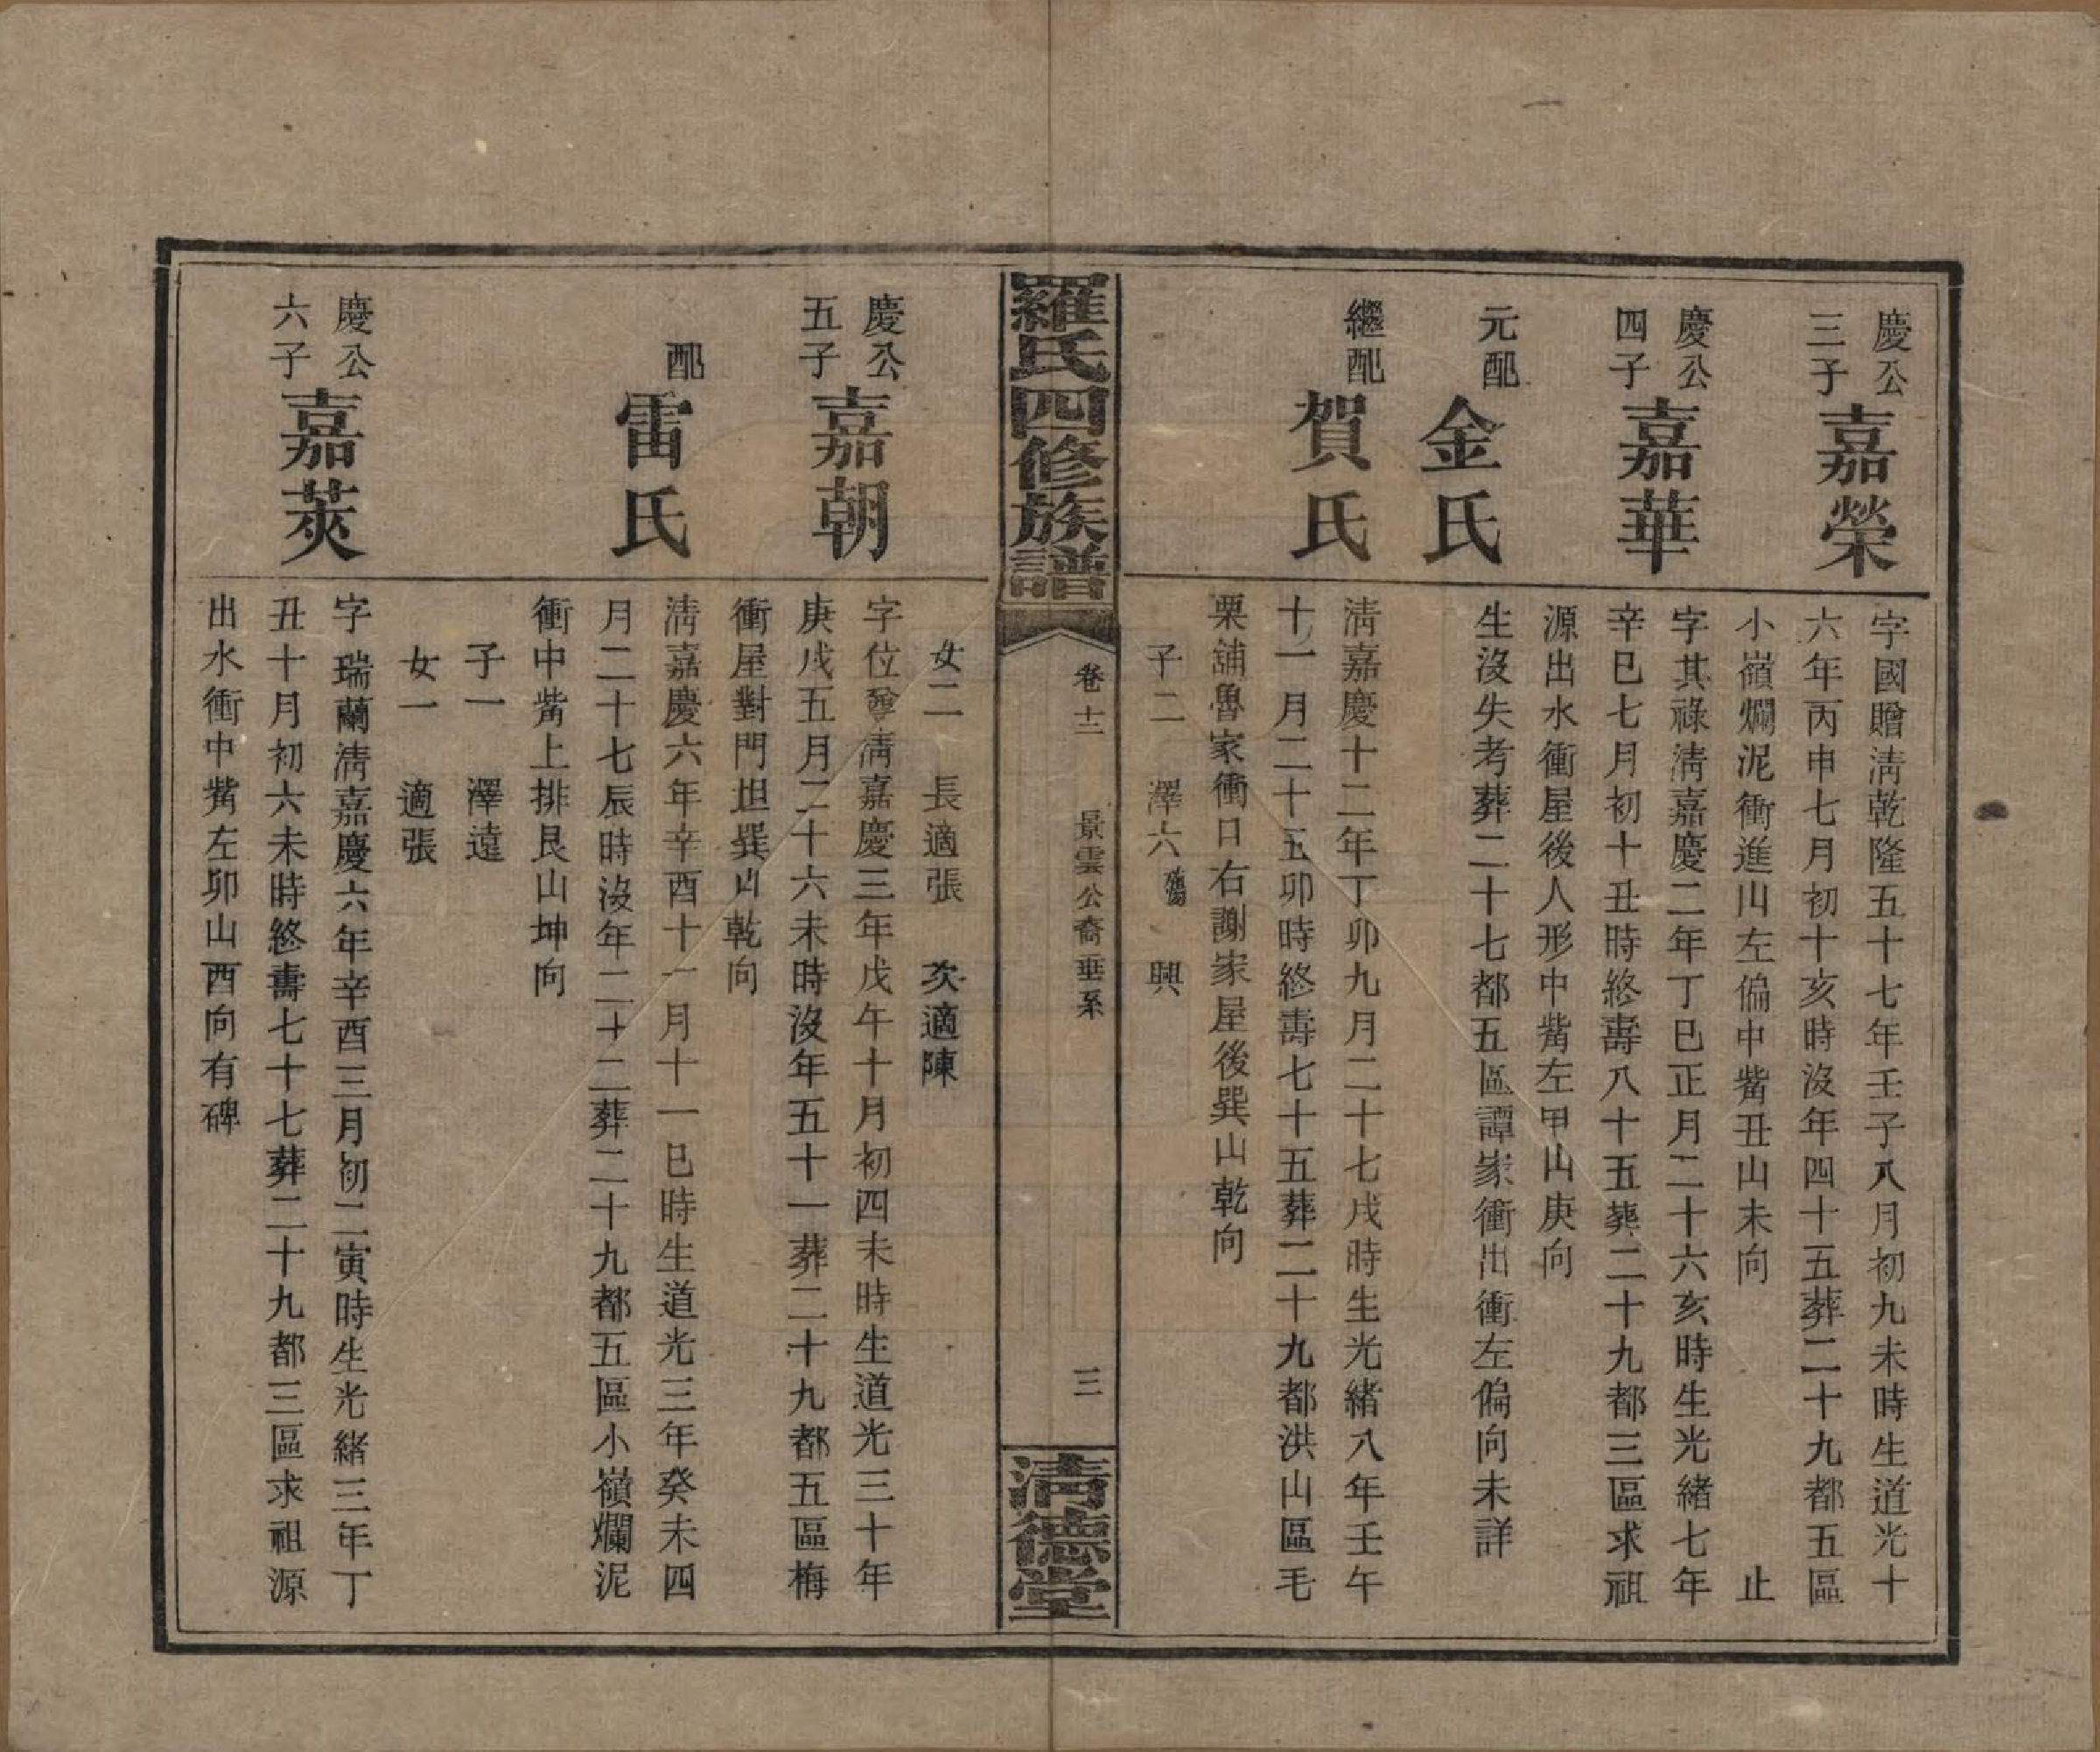 慶公三子 嘉榮
字國贈淸乾隆五十七年壬子八月初九未時生道光十
六年丙申七月初十亥時沒年四十五葬二十九都五區
小嶺爛泥衝進山左偏中嘴丑山未向 止
慶公四子 嘉華
字其祿淸嘉慶二年丁巳正月二十六亥時生光緒七年
辛巳七月初十丑時終壽八十五葬二十九都三區求祖
源出水衝屋後人形中嘴左甲山庚向
元配 金氏
生沒失考葬二十七都五區譚家衝出衝左偏向未詳
繼配 賀氏
淸嘉慶十二年丁卯九月二十七戌時生光緒八年壬午
十一月二十五卯時終壽七十五葬二十九都洪山區毛
栗舖魯家衝口右謝家屋後巽山乾向
子二 澤六殤 興
羅氏四修族譜
卷十二 景雲公裔垂系 三
淸德堂
女二 長適張 次適陳
慶公五子 嘉朝
字位爵淸嘉慶三年戊午十月初四未時生道光三十年
庚戌五月二十六未時沒年五十一葬二十九都五區梅
衝屋對門坦巽山乾向
配 雷氏
淸嘉慶六年辛酉十一月十一巳時生道光三年癸未四
月二十七辰時沒年二十二葬二十九都五區小嶺爛泥
衝中嘴上排艮山坤向
子一 澤遠
女一 適張
慶公六子 嘉莢
字瑞蘭淸嘉慶六年辛酉三月初二寅時生光緒三年丁
丑十月初六未時終壽七十七葬二十九都三區求祖源
出水衝中嘴左卯山酉向有碑